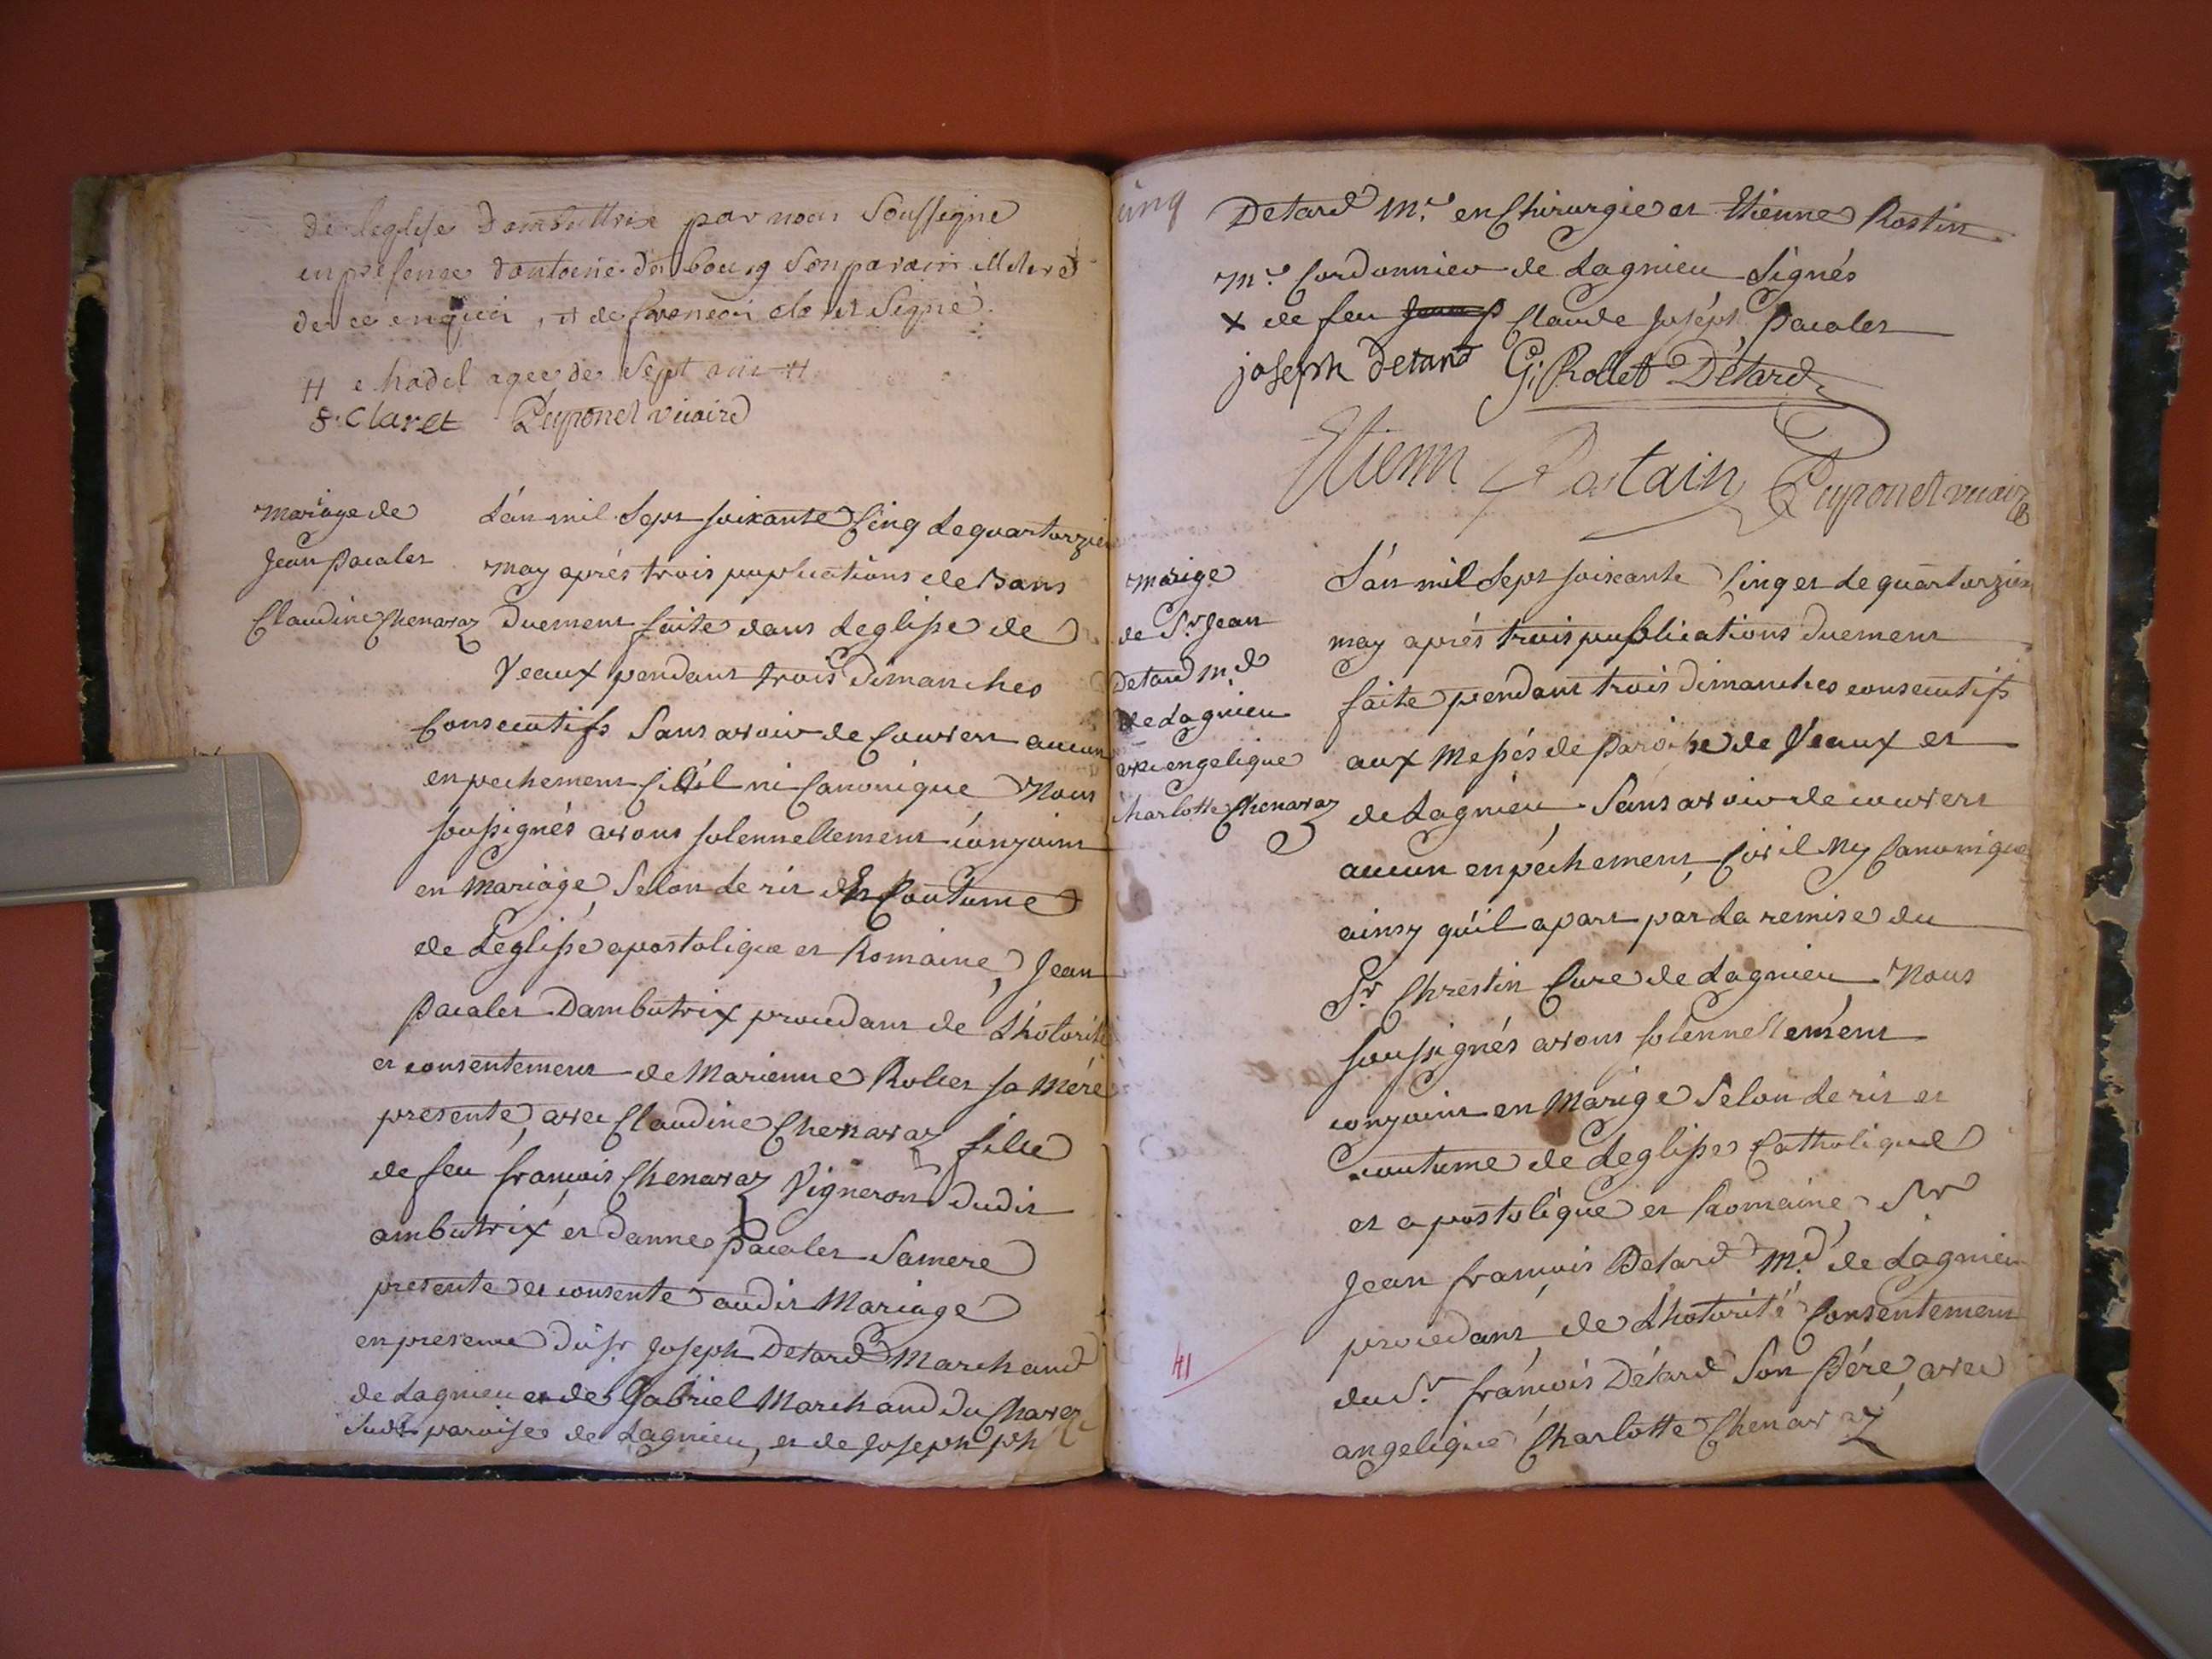 de leglise dambuttrix par nous soussigne
en presence dantoine dubourg son parain illiteré
de ce enquis, et de francois claret signé.
# chadel agée de sept ans #
f. Claret Peyronet vicaire
Mariage de
Jean Pacalet
Claudine Chenavaz
L'an mil sept soixante Cinq le quatorzie
may aprés trois puplications de Bans
Duement faite dans Leglise de
Veaux pendant trois Dimanches
Consecutifs Sans avoir de Couvert aucun
enpechement Civil ni Canonique Nous
soussignés avons solennellement conjoint
en Mariage, Selon le rit et Coutume
de Leglise apostolique et Romaine, Jean
Pacalet Dambutrix procedant de L'hotorité
et consentement de Marienne Rollet sa Mére
presente, avec Claudine Chenavaz fille
de feu francois Chenavaz Vigneron dudit
ambutrix et Danne Pacalet Samere
presente et consente audit Mariage
en presence du Sr Joseph Detard Marchand
de Lagnieu et de Gabriel Marchand Du Chavez
Sudt paroise de Lagnieu, et de Joseph ph
cinq
Detard Me en Chirurgie et Etienne Rostin
Me Cordonnier de Lagnieu Signés
x de feu Claude Joséph Pacalet
joseph detard G; Rollet Détard
Etienn Rostain Peyronet vicaire
Marige
de Sr Jean
Detard Md
de Lagnieu
avec engelique
Charlotte Chenavaz
L'an mil Sept soixante Cinq et le quatorzien
may aprés trois puplications Duement
faite pendant trois Dimanches consecutifs
aux Messés de Paroisse de Veaux et
de Lagnieu Sans avoir de couvert
aucun enpéchement, Civil Ny Canonique
ainsy qu'il apart par La remise du
Sr Chrestin Cure de Lagnieu Nous
soussignés avons solennellement
conjoint en Marige Selon le rit et
coutume de Leglise Catholique
et apostolique et Romaine Sr
Jean francois Detard Md de Lagnieu
procedant de L'hotorité Consentement
du Sr francois Détard Son Pére, avec
angelique Charlotte Chenavaz
41